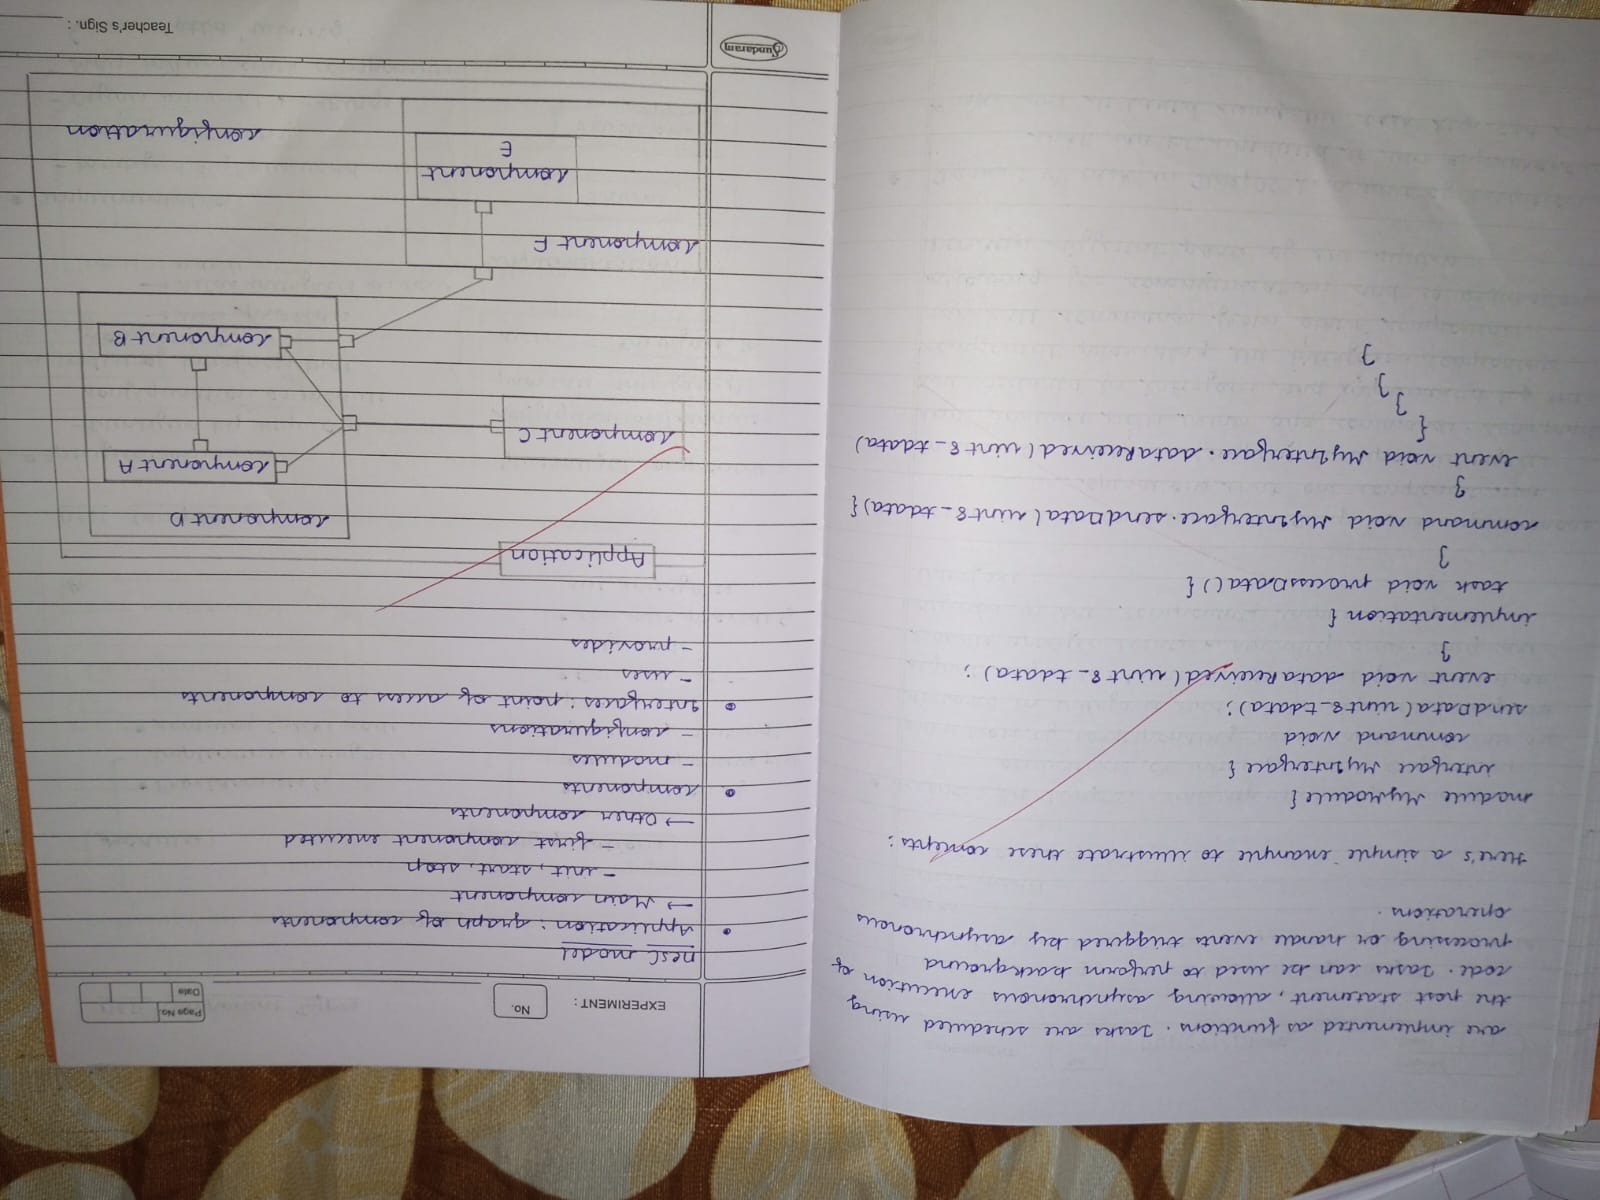 are implemented as functions. Tasks are scheduled using
the post statement, allowing asynchronous execution of
code. Tasks can be used to perform background
processing or handle events triggered by asynchronous
operations.
Here's a simple example to illustrate these concepts:
module MyModule {
interface MyInterface {
command void
sendData(uint8_tdata);
event void dataReceived(uint8_tdata);
}
implementation {
task void processData() {
}
command void MyInterface.sendData(uint8_tdata) {
}
event void MyInterface.dataReceived(uint8_tdata)
{
}
}
}
EXPERIMENT :
No.
Page No.
Date
nesC model
• Application: graph of components
→ Main component
- init, start, stop
- first component executed
→ Other components
• components
- modules
- configurations
• Interfaces: point of access to components
- uses
- provides
Application
component D
component A
component C
component B
component F
component
E
configuration
Sundaram
Teacher's Sign. :